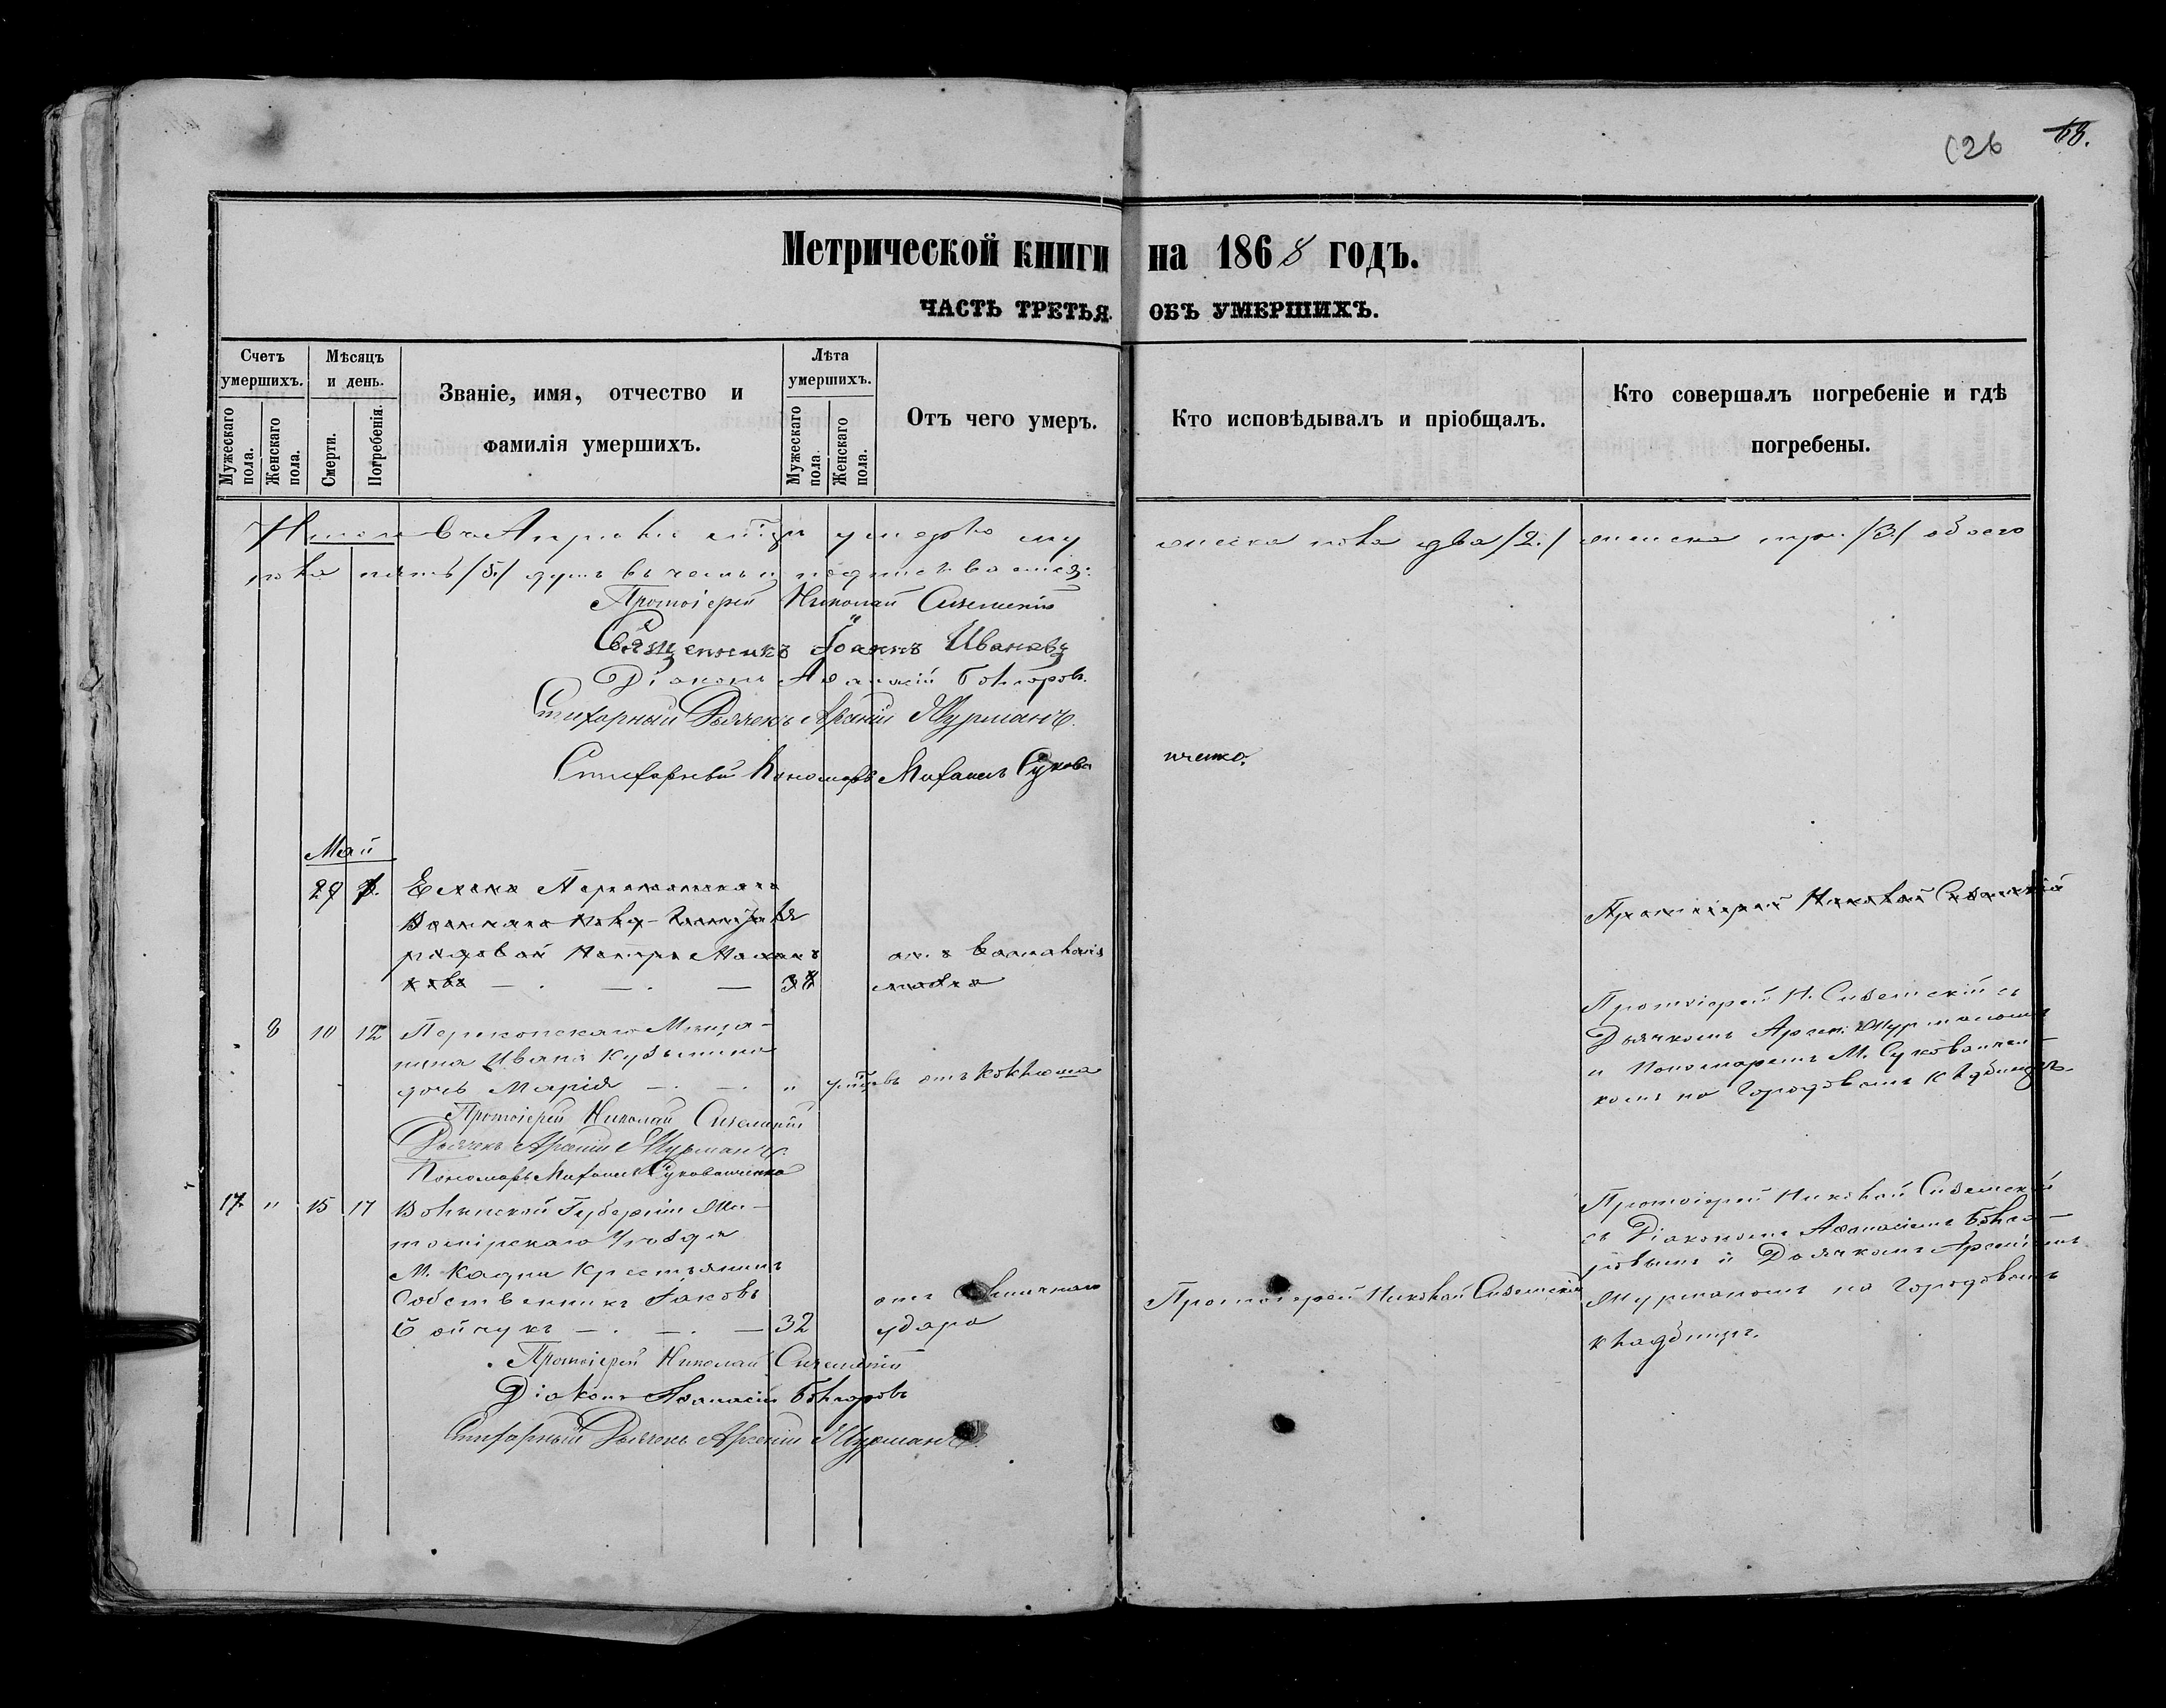 026 68.
Метрической книги на 1868 годъ.
ЧАСТЬ ТРЕТЬЯ ОБЪ УМЕРШИХЪ.
Счетъ умершихъ.
Мужескаго пола.
Женскаго пола.
Мѣсяцъ и день.
Смерти.
Погребенія.
Званіе, имя, отчество и
фамилія умершихъ.
Лѣта умершихъ.
Мужескаго пола.
Женскаго пола.
Отъ чего умеръ.
Кто исповѣдывалъ и пріобщалъ.
Кто совершалъ погребеніе и гдѣ
погребены.
Итого въ Апрѣлѣ м-цѣ умерло мужеска пола два /2./ женска три /3/ обоего
пола пять /5./ душъ въ чемъ и подписываемся:
Протоіерей Николай Сиземскій
Священникъ Іоаннъ Ивановъ
Діаконъ Аѳанасій Болгаровъ.
Стихарный Дьячекъ Арсеній Шурманъ.
Стихарный Пономарь Михаилъ Суковаченко.
Май
29 1.
рядовой Петръ
отъ воспаленія
38
Протоіерей Николай Сиземскій
8 10 12 Перекопскаго Мѣща-
нина Ивана Кузьмина
дочь Марія — . — . " отъ Коклюша
Протоіерей Н. Сиземскій съ
Дьячкомъ Арсен. Шурманомъ
и Пономаремъ М. Суковаченкомъ на Городовомъ Кладбищѣ.
Протоіерей Николай Сиземскій
Дьячекъ Арсеній Шурманъ.
Пономарь Михаилъ Суковаченко
17. " 15 17 Волынской Губерніи Жи-
томірскаго Уѣзда
М. Кодни Крестьянинъ
Собственникъ Іаковъ
Бойчукъ — . — . — 32
отъ
удара
Протоіерей Николай Сиземскій
Протоіерей Николай Сиземскій
съ Діакономъ Аѳанасіемъ Болга-
ровымъ и Дьячкомъ Арсеніемъ
Шурманомъ на Городовомъ
кладбищѣ.
Протоіерей Николай Сиземскій
Діаконъ Аѳанасій Болгаровъ
Стихарный Дьячекъ Арсеній Шурманъ.